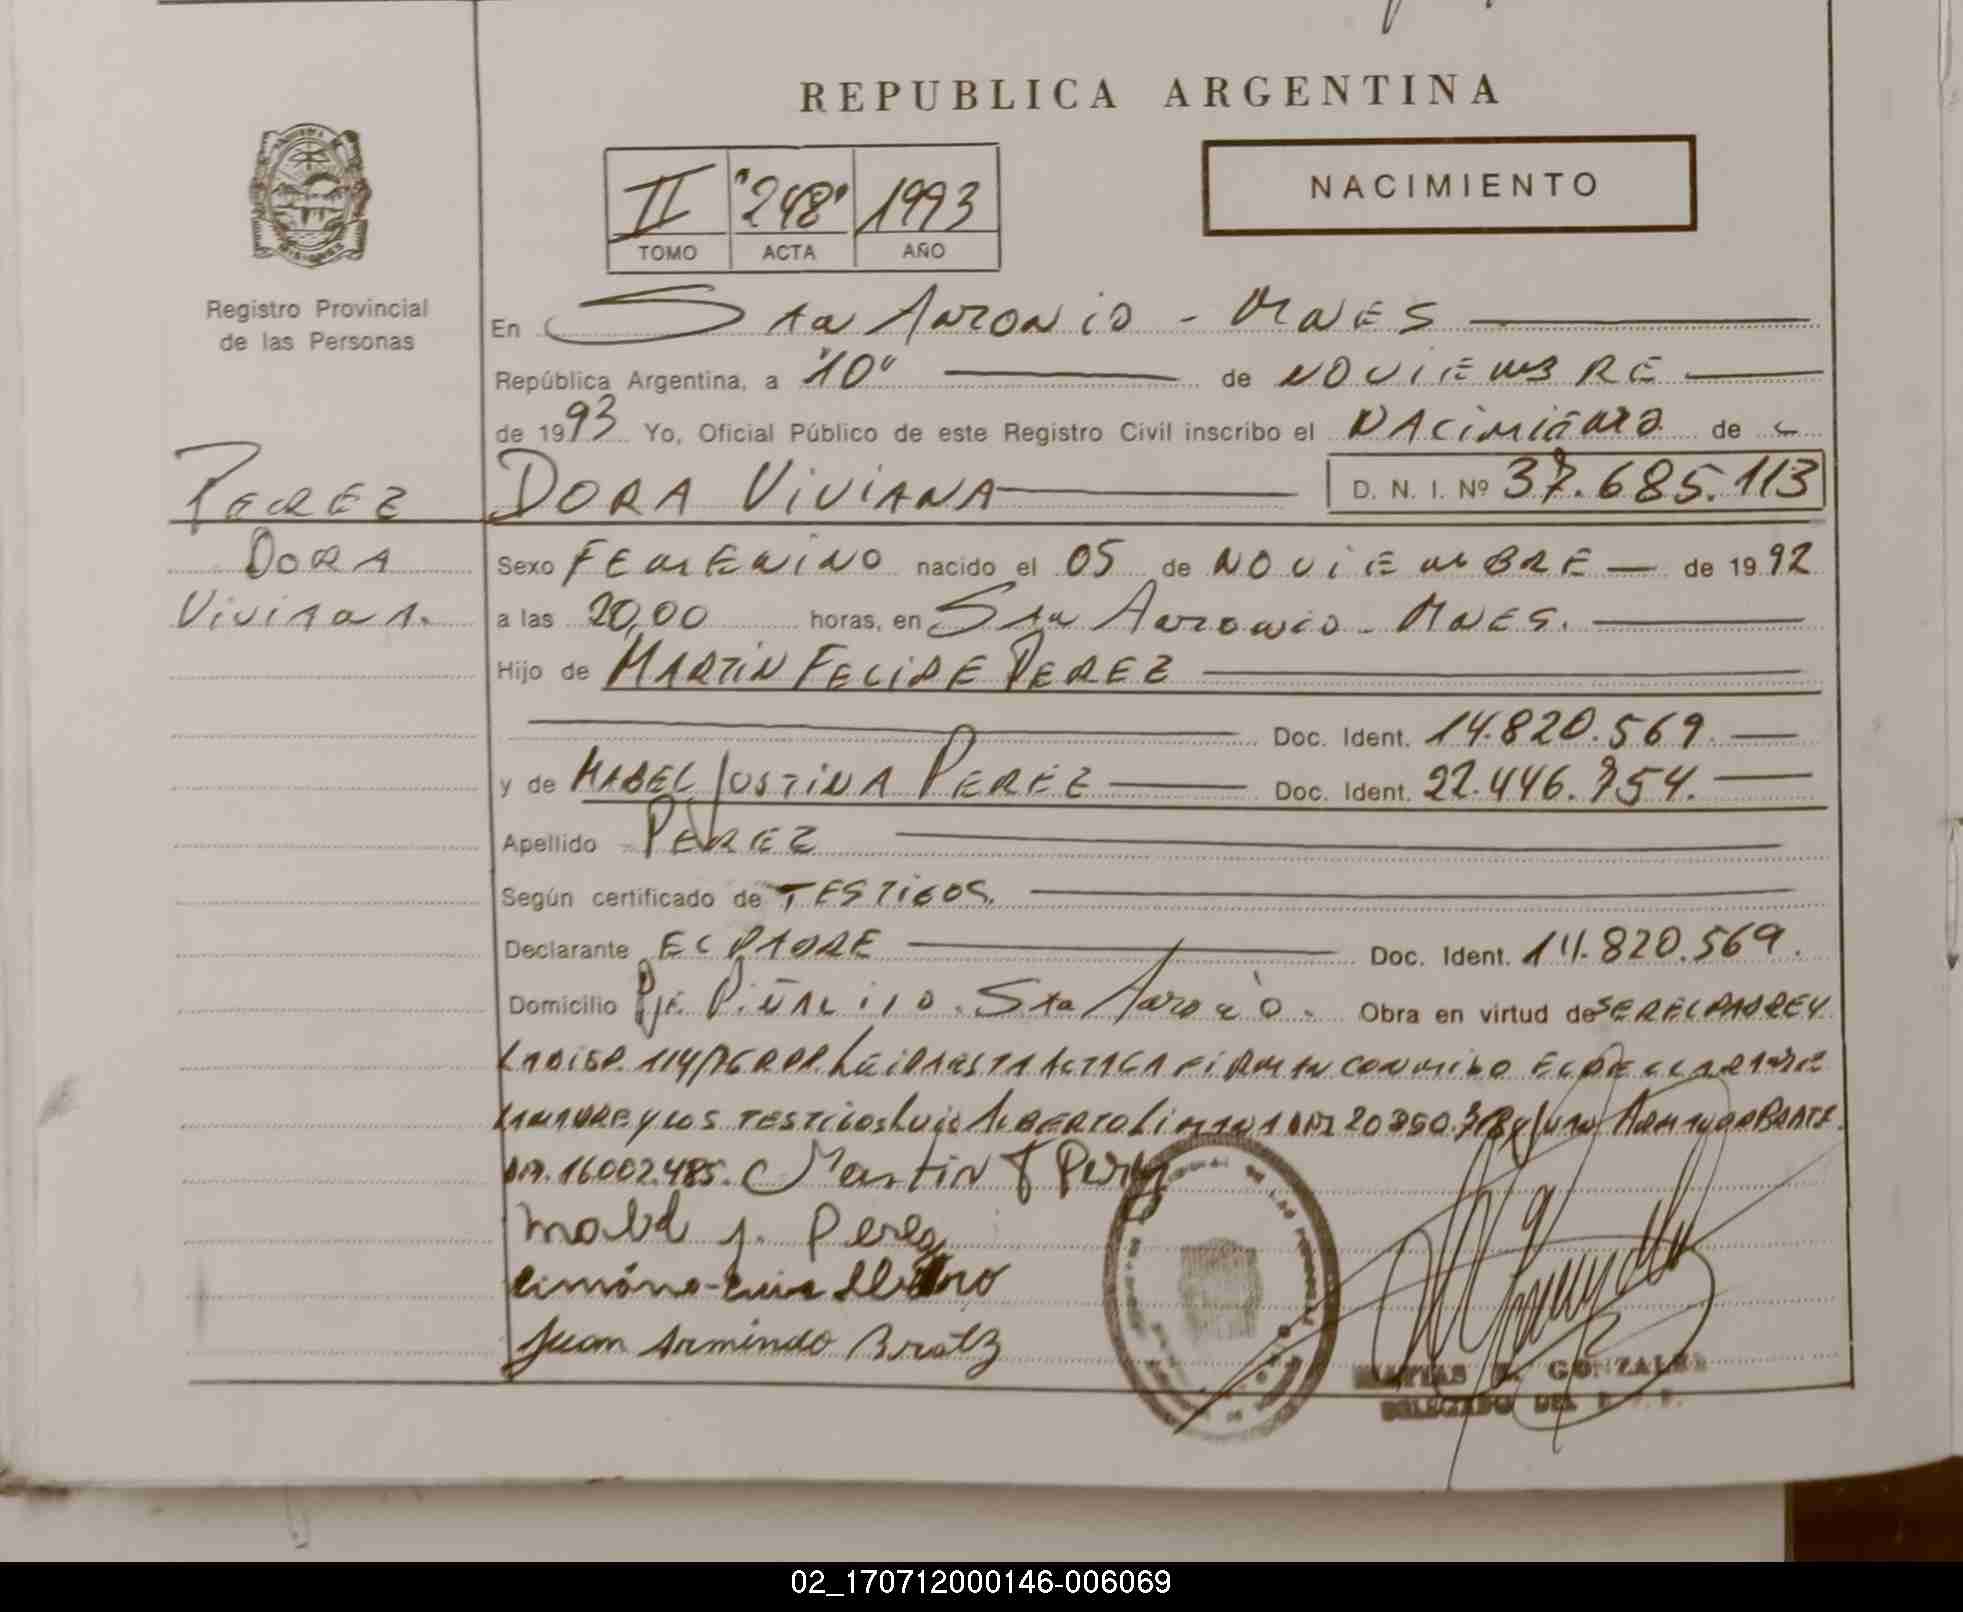 REPUBLICA ARGENTINA
II "248" 1993
TOMO ACTA AÑO
NACIMIENTO
Registro Provincial
de las Personas
En Sta Antonio - Mnes
República Argentina, a "10" de NOVIEMBRE
de 1993 Yo, Oficial Público de este Registro Civil inscribo el NACIMIENTO de
PEREZ
DORA VIVIANA
D. N. I. Nº 37.685.113
DORA
VIVIANA.
Sexo FEMENINO nacido el 05 de NOVIEMBRE de 1992
a las 20,00 horas, en Sta Antonio - Mnes.
Hijo de MARTIN FELIPE PEREZ
Doc. Ident. 14.820.569.
y de MABEL JUSTINA PEREZ Doc. Ident. 22.446.754.
Apellido PEREZ
Según certificado de TESTIGOS.
Declarante EL PADRE Doc. Ident. 14.820.569.
Domicilio Pje. PIÑALITO. Sta Antonio. Obra en virtud de SER EL PADRE Y
LA DISP. 114/76 RPP. LEIDA ESTA ACTA LA FIRMAN CONMIGO EL DECLARANTE
LA MADRE Y LOS TESTIGOS Luis ALBERTO
DNI. 16002.485. Martin F Perez
Mabel J. Perez
Juan Armindo Bratz
GONZALEZ
DELEGADO DEL
02_170712000146-006069